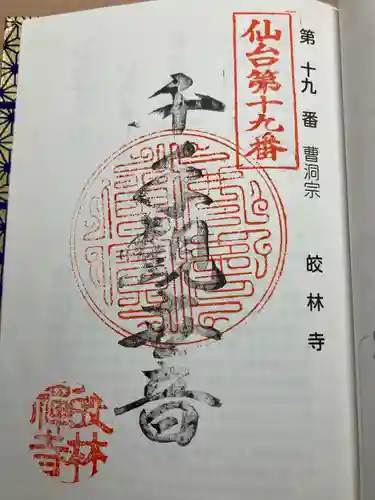 第十九番 曹洞宗 皎林寺
仙台第十九番
千手観世音
皎林禅寺